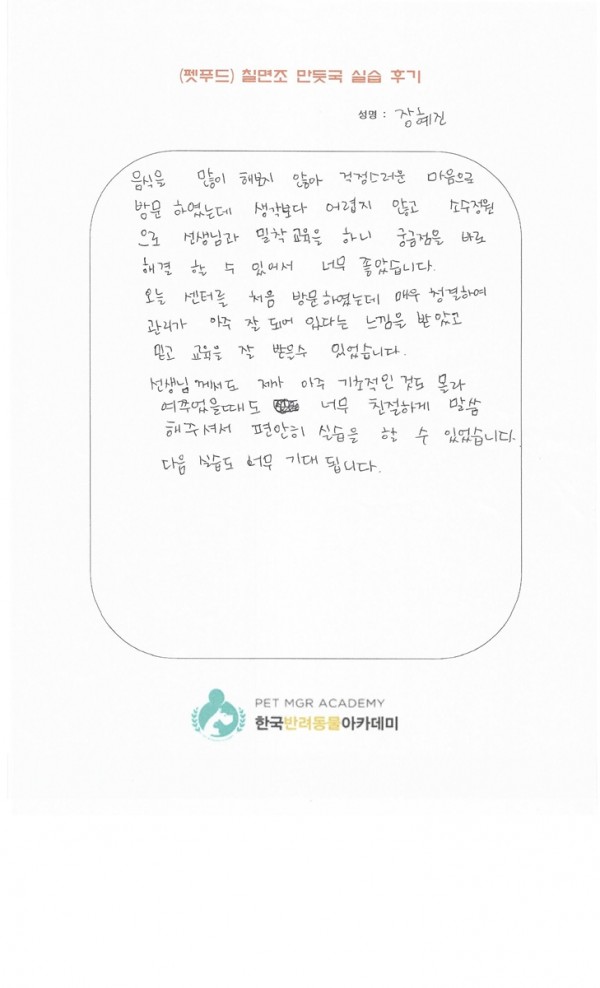 (펫푸드) 칠면조 만둣국 실습 후기
성명 : 장혜진
음식을 많이 해보지 않아 걱정스러운 마음으로
방문 하였는데 생각보다 어렵지 않고 소수정원
으로 선생님과 밀착교육을 하니 궁금점을 바로
해결 할 수 있어서 너무 좋았습니다.
오늘 센터를 처음 방문하였는데 매우 청결하여
관리가 아주 잘 되어 있다는 느낌을 받았고
믿고 교육을 잘 받을수 있었습니다.
선생님께서도 제가 아주 기초적인 것도 몰라
여쭈었을때도 너무 친절하게 말씀
해주셔서 편안히 실습을 할 수 있었습니다.
다음 실습도 너무 기대 됩니다.
PET MGR ACADEMY
한국반려동물아카데미